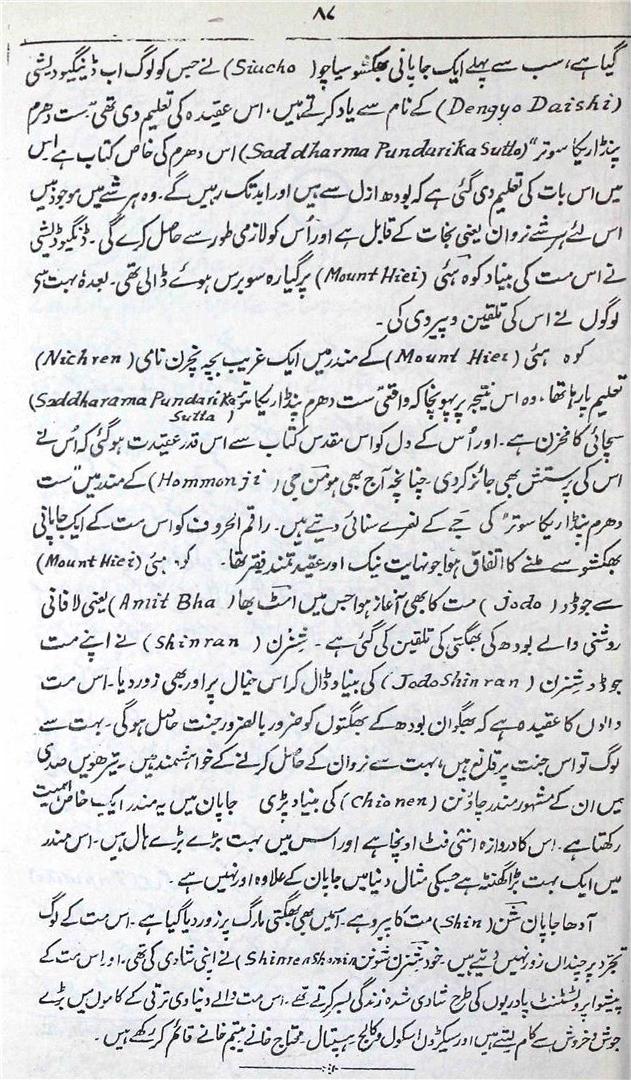 ۸۷
گیا ہے، سب سے پہلے ایک جاپانی بھکشو سیاچو (Siucho) نے جس کو لوگ اب ڈینگیو دیشی
(Dengyo Daishi) کے نام سے یاد کرتے ہیں، اس عقیدہ کی تعلیم دی تھی "ست دھرم
پنڈاریکا سوتر" (Saddharma Pundarika Sutto) اس دھرم کی خاص کتاب ہے اس
میں اس بات کی تعلیم دی گئی ہے کہ بودھ ازل سے ہیں اور ابد تک رہیں گے۔ وہ ہر شے میں موجود ہیں
اس لئے ہر شے نروان یعنی نجات کے قابل ہے اور اُس کو لازمی طور سے حاصل کرے گی۔ ڈنگیو ڈیشی
نے اس مت کی بنیاد کوہ ہئی (Mount Hiei) پر گیارہ سو برس ہوئے ڈالی تھی۔ بعدۂ بہت سے
لوگوں نے اس کی تلقین و پیروی کی۔
کوہ ہئی (Mount Hiei) کے مندر میں ایک غریب بچہ نچرن نامی (Nichren)
تعلیم پا رہا تھا، وہ اس نتیجہ پر پہونچا کہ واقعی ست دھرم پنڈاریکا سوتر (Saddharama Pundarika
Sutta)
سچائی کا مخزن ہے۔ اور اُس کے دل کو اس مقدس کتاب سے اس قدر عقیدت ہو گئی کہ اُس نے
اس کی پرستش بھی جائز کر دی۔ چنانچہ آج بھی ہومن جی (Hommonji) کے مندر میں "ست
دھرم پنڈاریکا سوتر" کی جے کے نعرے سنائی دیتے ہیں۔ راقم الحروف کو اس مت کے ایک جاپانی
بھکشو سے ملنے کا اتفاق ہوا جو نہایت نیک اور عقیدتمند فقیر تھا۔ کوہ ہئی (Mount Hiei)
سے جوڈو (Jodo) مت کا بھی آغاز ہوا جس میں امٹ بھا (Amit Bha) یعنی لافانی
روشنی والے بودھ کی بھگتی کی تلقین کی گئی ہے۔ شِنرن (Shinran) نے اپنے مت
جوڈو شنرن (Jodo Shin ran) کی بنیاد ڈال کر اس خیال پر اور بھی زور دیا۔ اس مت
والوں کا عقیدہ ہے کہ بھگوان بودھ کے بھگتوں کو ضرور بالضرور جنت حاصل ہوگی۔ بہت سے
لوگ تو اس جنت پر قانع ہیں، بہت سے نروان کے حاصل کرنے کے خواہشمند ہیں۔ تیرھویں صدی
میں ان کے مشہور مندر چاؤنن (Chionen) کی بنیاد پڑی جاپان میں یہ مندر ایک خاص اہمیت
رکھتا ہے۔ اس کا دروازہ انٹی فٹ اونچا ہے اور اس میں بہت بڑے بڑے ہال ہیں۔ اس مندر
میں ایک بہت بڑا گھنٹہ ہے جسکی مثال دنیا میں جاپان کے علاوہ اور نہیں ہے
آدھا جاپان شن (Shin) مت کا پیرو ہے۔ اسمیں بھی بھگتی مارگ پر زور دیا گیا ہے۔ اس مت کے لوگ
تجرّد پر چنداں زور نہیں دیتے ہیں۔ خود شنرن شونن Shinren Shonin) نے اپنی شادی کی تھی۔ اور اس مت کے
پیشوا پروٹسٹنٹ پادریوں کی طرح شادی شدہ زندگی بسر کرتے تھے۔ اس مت والے دنیاوی ترقی کے کاموں میں بڑے
جوش و خروش سے کام لیتے ہیں اور سیکڑوں اسکول و کالج ہسپتال۔ محتاج خانے یتیم خانے قائم کر رکھے ہیں۔